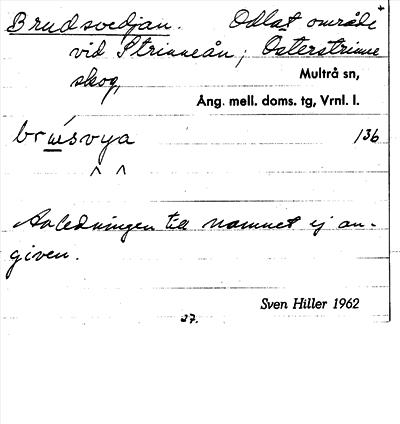 Brudsvedjan. Odlat område
vid Strinneån, Österstrinne
skog,
Multrå sn,
Ång. mell. doms. tg, Vrnl. l.
136
Avledningen till namnet ej an-
given.
Sven Hiller 1962
27.